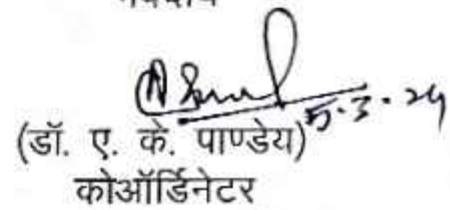 5.3.24
(डॉ. ए. के. पाण्डेय)
कोऑर्डिनेटर